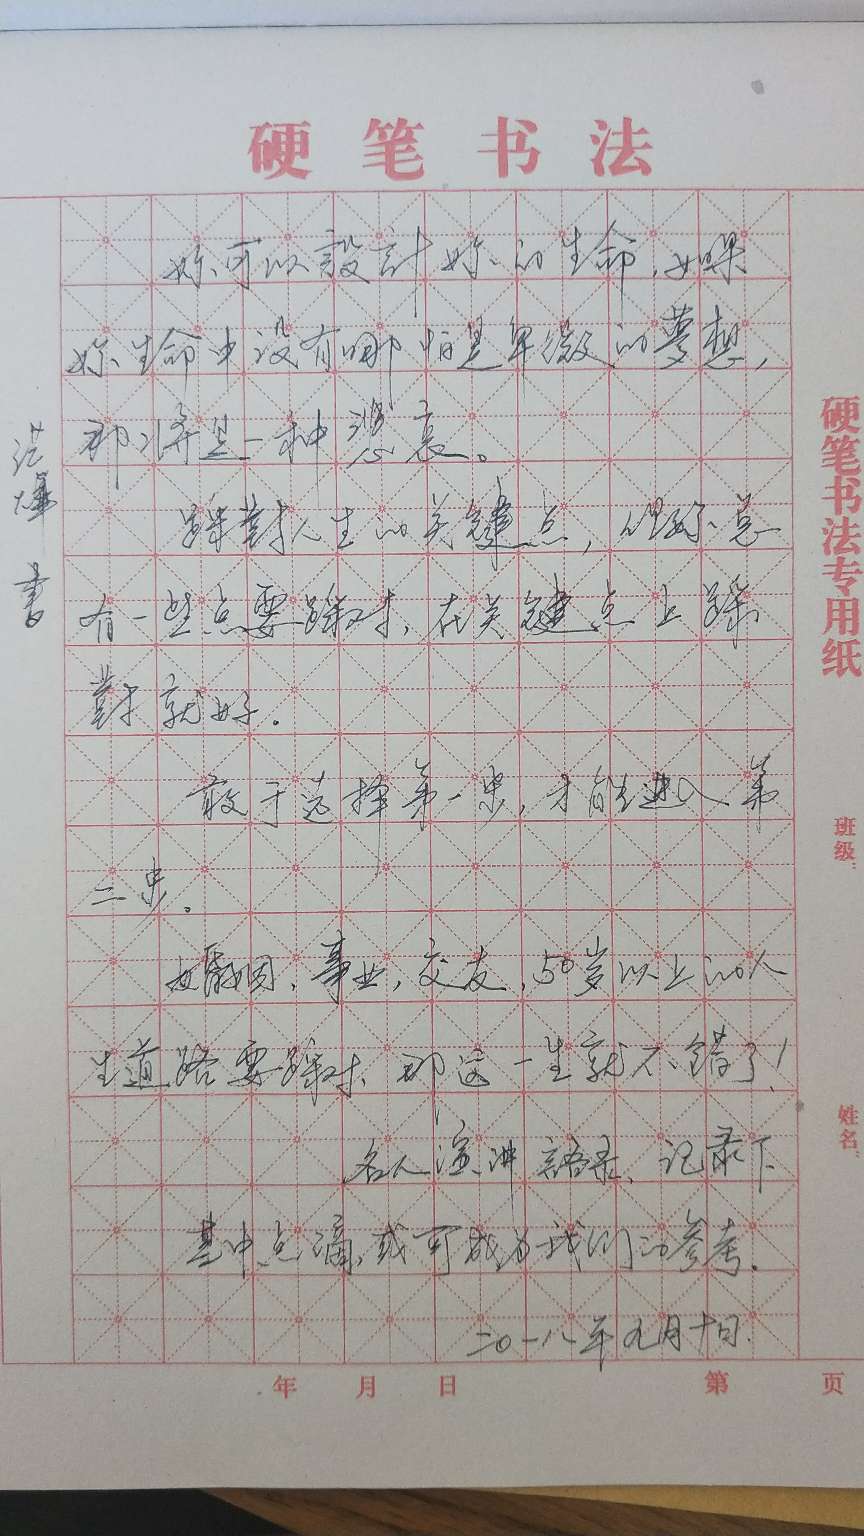 硬笔书法
你可以設計你的生命，如果
你生命中没有哪怕是卑微的夢想，
那将是一种悲哀。
踩對人生的关键点，但你总
有一些点要踩对，在关键点上踩
對就好。
敢于选择第一步，才能进入第
二步。
婚姻、事业，交友，50岁以上的人
生道路要踩对，那这一生就不错了！
名人演讲語录，记录下
其中点滴，或可成为我们的参考。
二〇一八年九月十日.
书
硬笔书法专用纸
班级：
姓名：
年 月 日 第 页